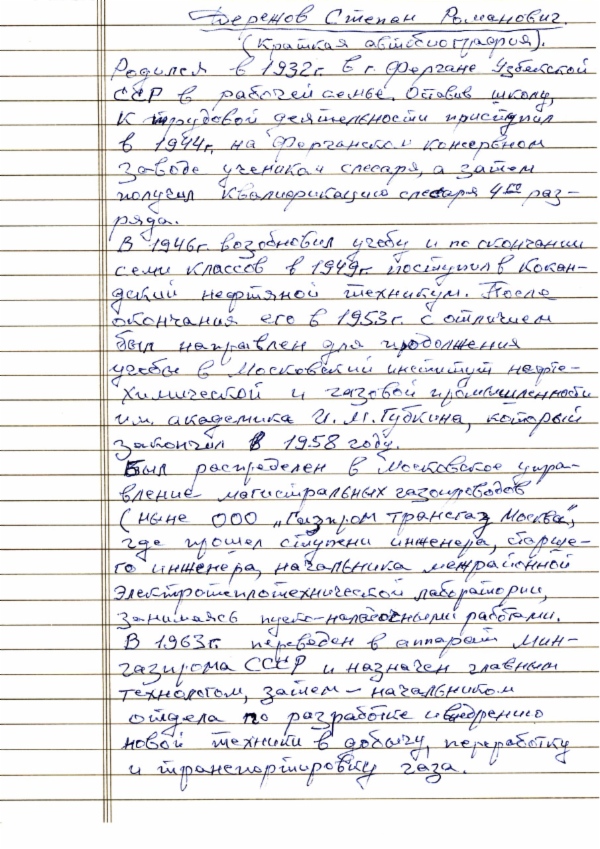 Дережов Степан Романович.
(Краткая автобиография).
Родился в 1932г. в г. Фергане Узбекской
ССР в рабочей семье. Оставив школу,
к трудовой деятельности приступил
в 1944г. на Ферганском консервном
заводе учеником слесаря, а затем
получил квалификацию слесаря 4го раз-
ряда.
В 1946г. возобновил учебу и по окончании
семи классов в 1949г. поступил в Кокан-
дский нефтяной техникум. После
окончания его в 1953г. с отличием
был направлен для продолжения
учебы в Московский институт нефте-
химической и газовой промышленности
им. академика И.М. Губкина, который
закончил в 1958 году.
Был распределен в Московское упра-
вление магистральных газопроводов
(ныне ООО „Газпром трансгаз Москва”,
где прошел ступени инженера, старше-
го инженера, начальника межрайонной
электротеплотехнической лаборатории,
занимаясь пуско-наладочными работами.
В 1963г. переведен в аппарат Мин-
газпрома СССР и назначен главным
технологом, затем – начальником
отдела по разработке и внедрению
новой техники в добычу, переработку
и транспортировку газа.